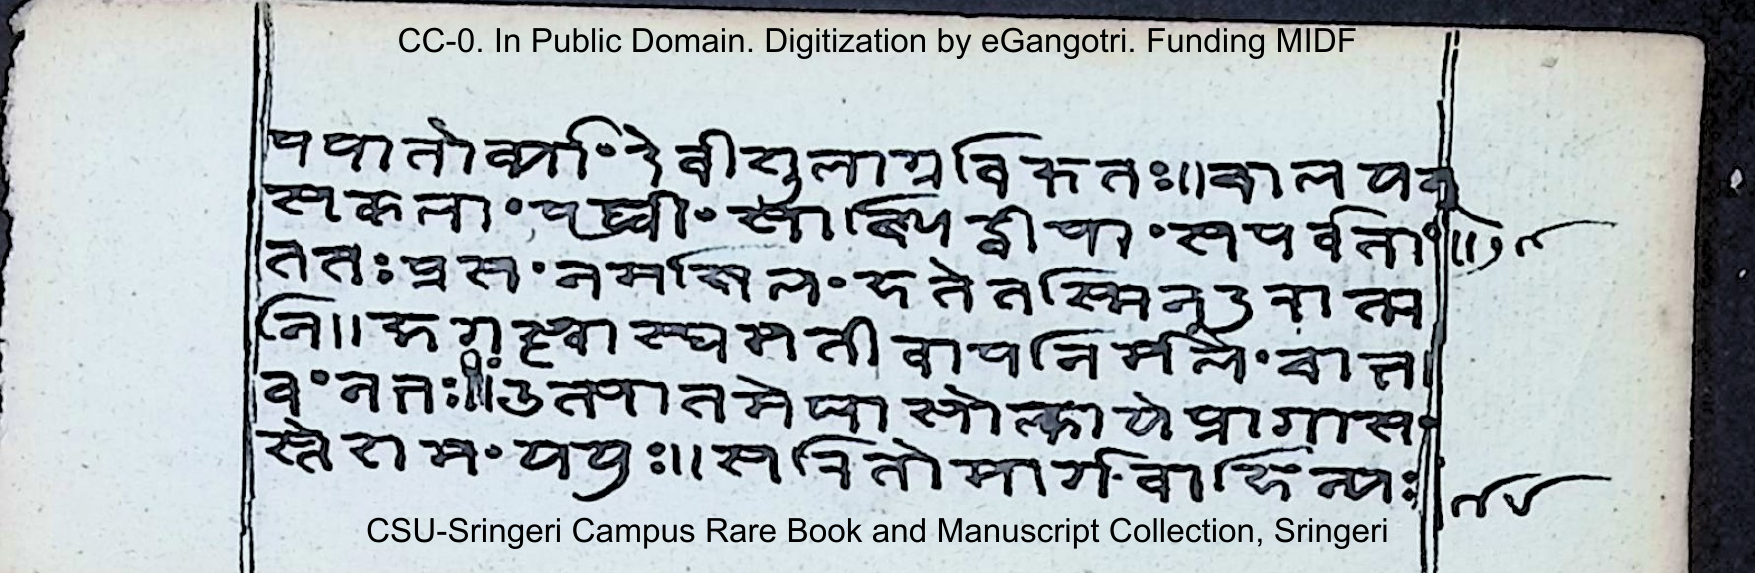 CC-0. In Public Domain. Digitization by eGangotri. Funding MIDF
पपातोर्व्यां देवीशूलाग्रविक्षतः॥चालयन्
सकलां पृथ्वीं साब्धिद्वीपां सपर्वतां॥
ततः प्रसंनमखिलं हते तस्मिन् दुरात्म
नि॥जगत्स्वास्थ्यमतीवाप निर्मलं चाभ
वंनभः॥उत्पातमेघाः सोल्का ये प्रागासं
स्ते शमं ययुः॥सरितो मार्गवाहिन्यः
CSU-Sringeri Campus Rare Book and Manuscript Collection, Sringeri